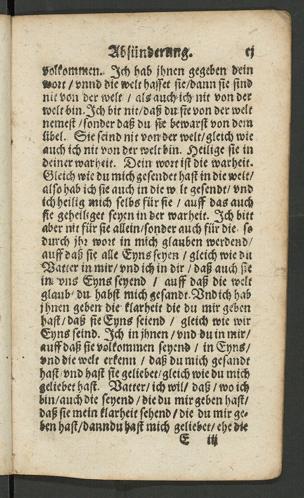 Absünderung. cj
volkommen. Ich hab jhnen gegeben dein
wort / vnnd die welt hasset sie / dann sie sind
nit von der welt / als auch ich nit von der
welt bin. Ich bit nit / daß du sie von der welt
nemest / sonder daß du sie bewarst von dem
übel. Sie seind nit von der welt / gleich wie
auch ich nit von der welt bin. Heilige sie in
deiner warheit. Dein wort ist die warheit.
Gleich wie du mich gesendet hast in die welt /
also hab ich sie auch in die w lt gesendt / vnd
ich heilig mich selbs für sie / auff das auch
sie geheiliget seyen in der warheit. Ich bitt
aber nit für sie allein / sonder auch für die so
durch jhr wort in mich glauben werdend /
auff daß sie alle Eyns seyen / gleich wie du
Vatter in mir / vnd ich in dir / daß auch sie
in vns Eyns seyend / auff daß die welt
glaub / du habst mich gesandt. Vnd ich hab
jhnen geben die klarheit die du mir geben
hast / daß sie Eyns seiend / gleich wie wir
Eyns seind. Ich in jhnen / vnd du in mir /
auff daß sie volkommen seyend / in Eyns /
vnd die welt erkenn / daß du mich gesandt
hast vnd hast sie geliebet / gleich wie du mich
geliebet hast. Vatter / ich will / daß / wo ich
bin / auch die seyend / die du mir geben hast /
daß sie mein klarheit sehend / die du mir ge-
ben hast / dann du hast mich geliebet / ehe die
E iij